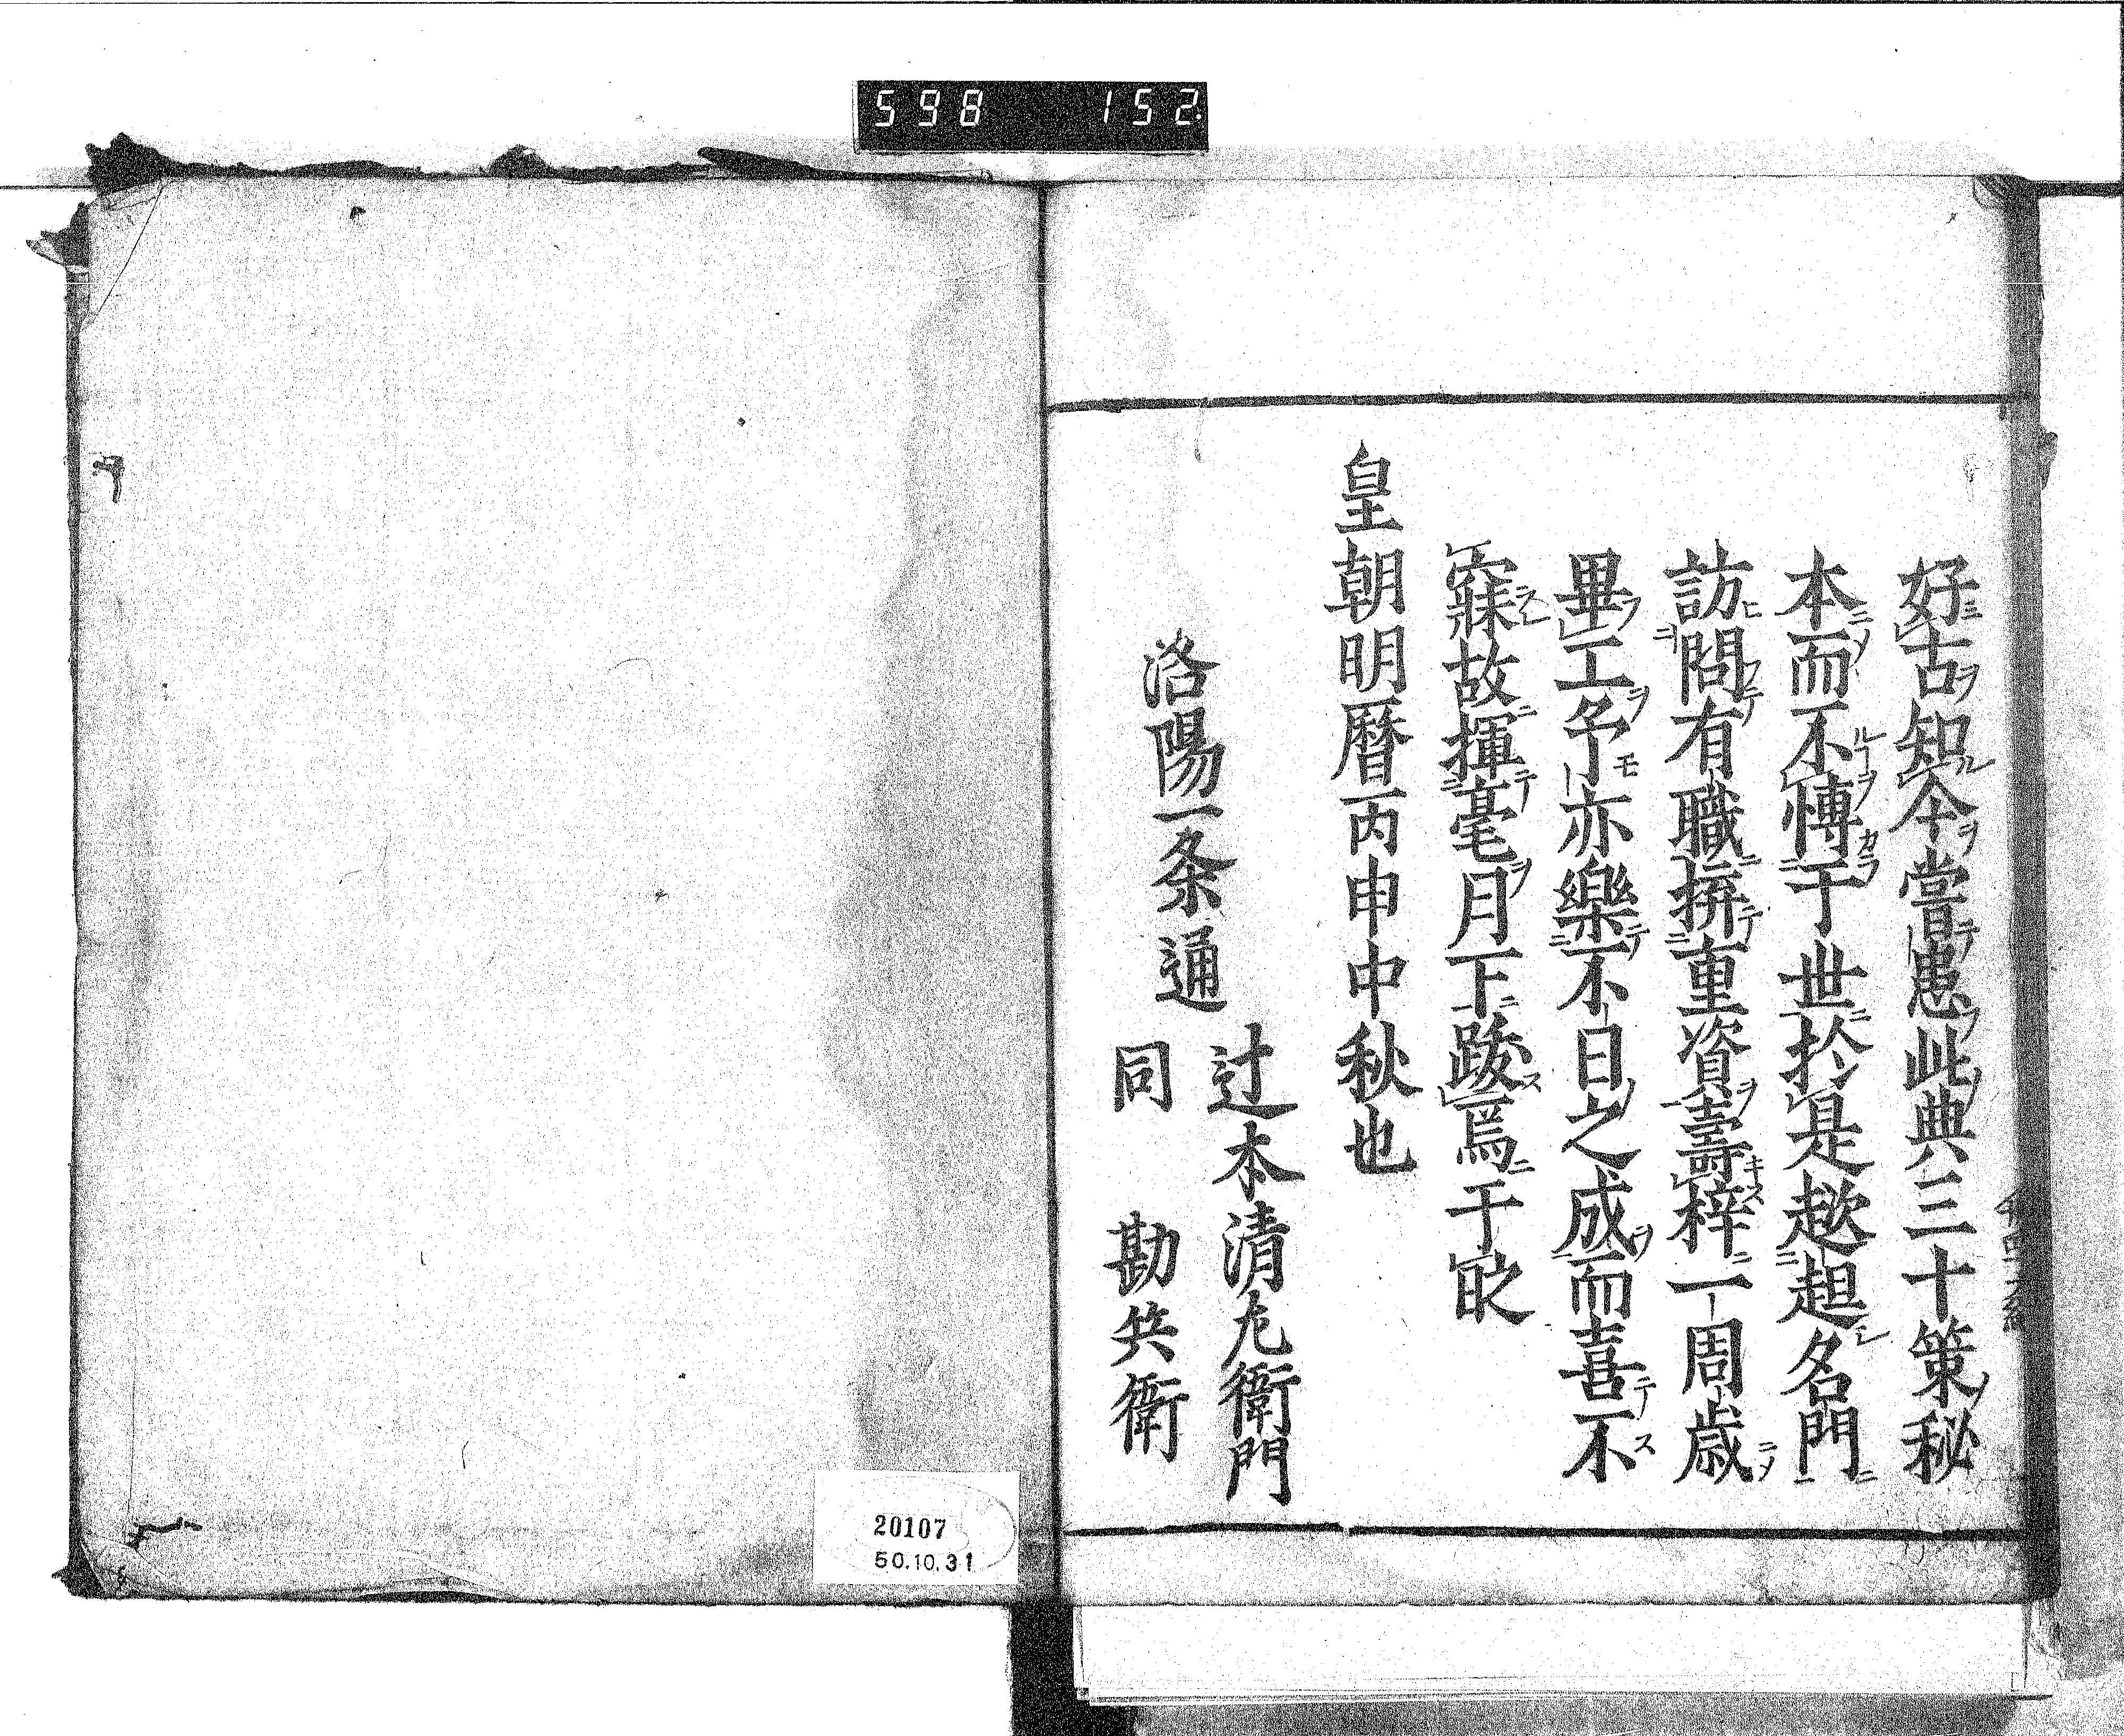 598 152
好古知今嘗患此典三十策秘
本而不慱于世於是趑趄名門
訪問有職拼重資壽梓一周歳
畢工予亦樂不日之成而喜不
寐故揮毫月下跋焉于時
皇朝明暦丙申中秋也
洛陽一条通
辻本清左衛門
同 勘兵衛
20107
50.10.31